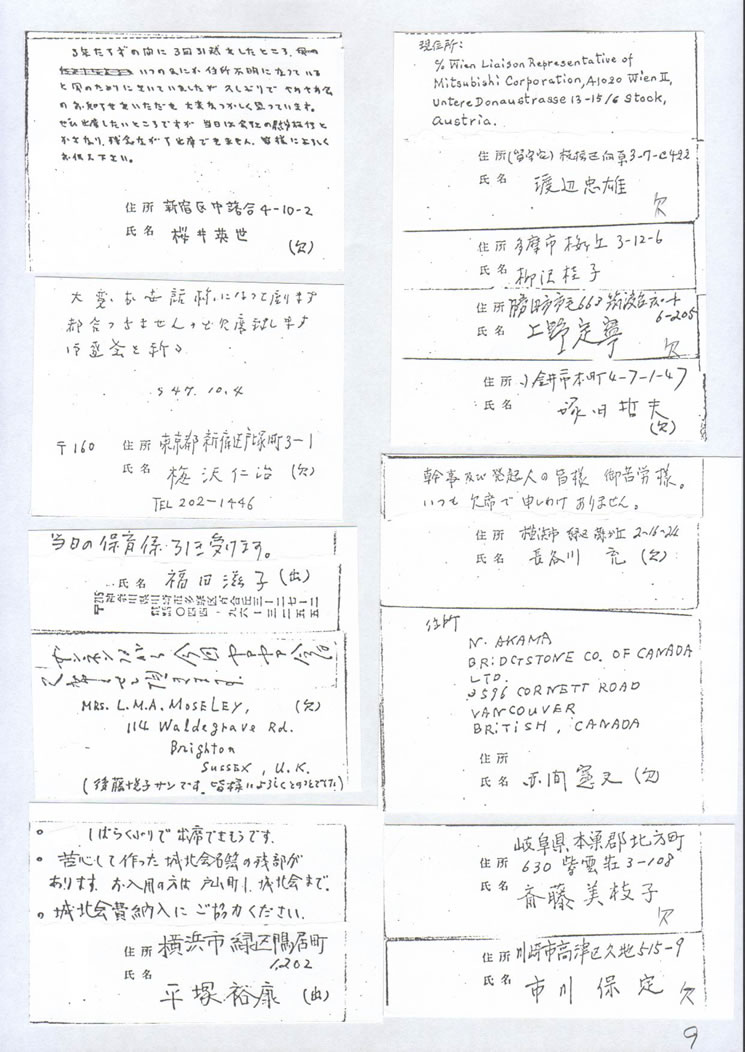 3年たらずの間に3回引越をしたところ、
いつのまにか住所不明になっている
のお知らせをいただき大変なつかしく思っています。
ぜひ出席したいところですが 当日は会社の
かさなり、残念ながら出席できません。皆様によろしく
お伝え下さい。
住所 新宿区中落合4-10-2
氏名 桜井英世 (欠)
大変お世話様になって居ります
都合つきませんので欠席致します
御盛会を祈る
S47.10.4
〒160 住所 東京都新宿区戸塚町3-1
氏名 梅沢仁治 (欠)
TEL 202-1446
当日の保育係引き受けます。
氏名 福田滋子 (出)
ザンネンながら今回
MRS. L.M.A. MOSELEY, (欠)
114 Waldegrave Rd.
Brighton
SUSSEX, U.K.
(後藤悦子サンです。皆様によろしくとのことでした)
○ しばらくぶりで出席できそうです。
○ 苦心して作った城北会名簿の残部が
あります。お入用の方は戸山町1.城北会まで。
○ 城北会費納入にご協力ください。
住所 横浜市緑区鴨居町
1202
氏名 平塚裕康 (出)
現住所:
c/o Wien Liaison Representative of
Mitsubishi Corporation, A1020 Wien II,
Untere Donaustrasse 13-15/6 Stock,
Austria.
住所 (留守宅) 板橋区向原3-7-C422
氏名 渡辺忠雄
欠
住所 多摩市桜ヶ丘 3-12-6
氏名 柳沢桂子
住所 勝田市市毛663
6-205
氏名 上野定寧
欠
住所 小金井市本町4-7-1-47
氏名 塚田哲夫
(欠)
幹事及び発起人の皆様 御苦労様。
いつも欠席で申しわけありません。
住所 横浜市緑区 2-16-24
氏名 長谷川 充 (欠)
住所
N. AKAMA
BRIDGTSTONE CO. OF CANADA
LTD.
3596 CORNETT ROAD
VANCOUVER
BRITISH, CANADA
住所
氏名 赤間憲文 (欠)
岐阜県本巣郡北方町
住所 630 紫雲荘3-108
氏名 斎藤美枝子
欠
住所 川崎市高津区久地515-9
氏名 市川保定 欠
9